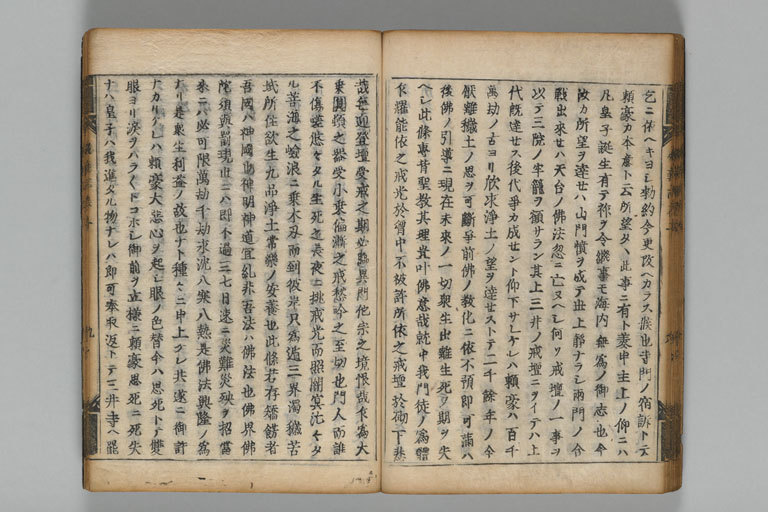 乞ニ依ヘキヨシ勅約今更改ヘカラス候也寺門ノ宿訴トテ
頼豪カ本意ト云所望タヽ此事ニ有ト蒙申主上ノ仰ニハ
凡皇子誕生有テ祚ヲ令継事モ海内無為ノ御志也今
汝カ所望ヲ達セハ山門憤ヲ成テ世上静ナラシ両門ノ合
戦出來セハ天台ノ佛法忽ニ亡ヌヘシ何ソ戒壇ノ一事ヲ
以テ三院ノ牢籠ヲ顧サラン其上三井ノ戒壇ニヲイテハ上
代既達セス後代争カ成セント仰下サレケレハ頼豪ハ百千
萬劫ノ古ヨリ欣求浄土ノ望ヲ達セストテ二千餘年ノ今
厭離穢土ノ思ヲ可斷爭前佛ノ教化ニ依不預即可漏ハ
後佛ノ引導ニ現在未來ノ一切衆生出離生死ノ期ヲ失
ヘシ此條専背聖教其理貴叶佛意哉就中我門徒ノ為體
乍羅能依之戒光於曾中不被許所依之戒壇於砌下悲
哉毎迎登壇受戒之期必臨異門他宗之境恨哉乍為大
乗圓頓之器受小乗偏漸之戒愁吟之至切也門人而誰
不傷嗟悠々タル生死之長夜ニ挑戒光而照闇冥沈々タ
ル苦海之嶮浪ニ乗木刃而到彼岸只為遁三界濁穢苦
域所住欲生九品浄土常樂ノ安養也此條若存矯餝者
吾國ハ神國也神明神道冝糺非吾法ハ佛法也佛界佛
陀須與罰現世ニハ即不過二七日速ニ災難災殃ヲ招當
來ニハ必可限萬劫千劫永沈八寒八熱是佛法興隆ノ為
ナリ是衆生利益ノ故也ナト種々ニ申上ラレ共遂ニ御許
ナカリケレハ頼豪大悲心ヲ起シ眼ノ色替今ハ思死トテ雙
眼ヨリ涙ヲハラ〱トコホシ御前ヲ立様ニ頼豪思死ニ死失
ナハ皇子ハ我進タル物ナレハ即可奉取返トテ三井寺ヘ罷